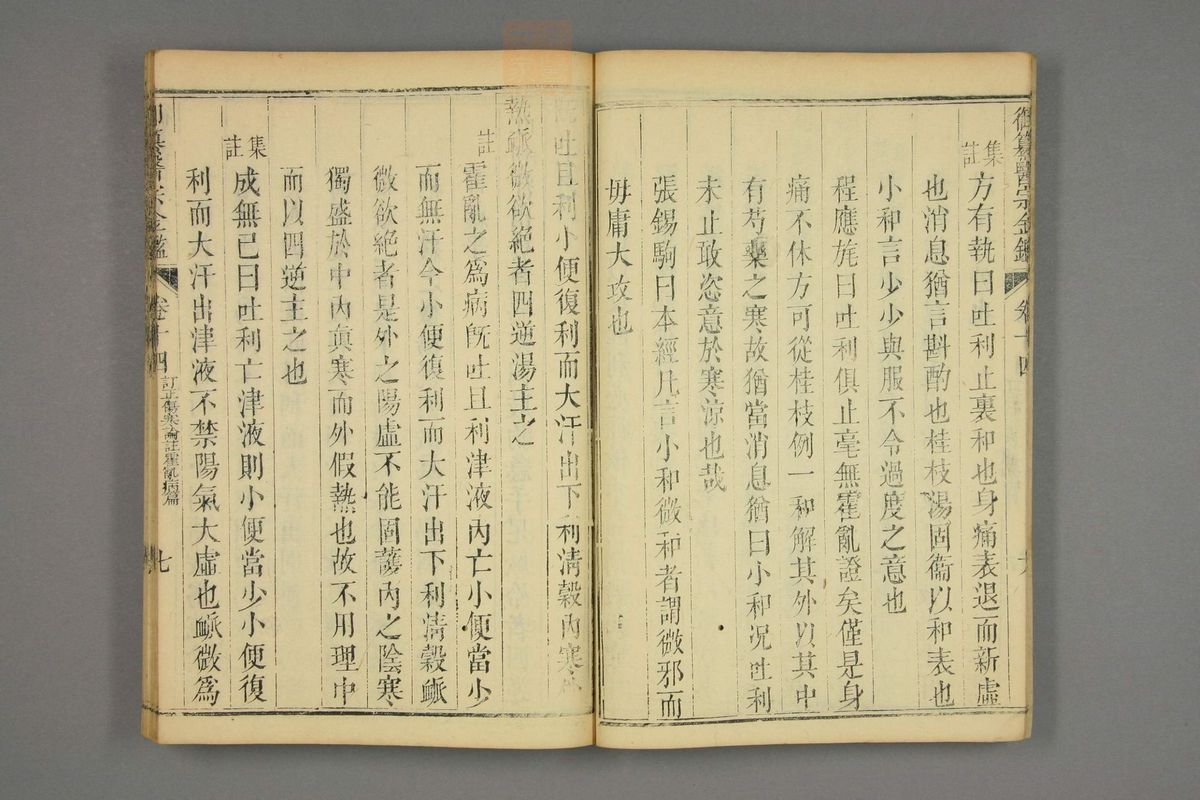 御纂醫宗金鑑
卷十四
集註
方有執曰吐利止裏和也身痛表退而新虛
也消息猶言斟酌也桂枝湯固衞以和表也
小和言少少與服不令過度之意也
程應旄曰吐利俱止毫無霍亂證矣僅是身
痛不休方可從桂枝例一和解其外以其中
有芍藥之寒故猶當消息猶曰小和況吐利
未止敢恣意於寒涼也哉
張錫駒曰本經凡言小和微和者謂微邪而
毋庸大攻也
旣吐且利小便復利而大汗出下利淸穀內寒外
熱脈微欲絕者四逆湯主之
註
霍亂之爲病旣吐且利津液內亡小便當少
而無汗今小便復利而大汗出下利淸穀脈
微欲絕者是外之陽虛不能固護內之陰寒
獨盛於中內眞寒而外假熱也故不用理中
而以四逆主之也
集註
成無已曰吐利亡津液則小便當少小便復
利而大汗出津液不禁陽氣大虛也脈微爲
御纂醫宗金鑑
卷十四
訂正傷寒論註霍亂病篇
七